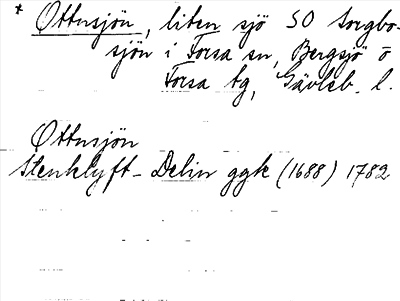 * Ottusjön, liten sjö SO Sorgbo-
sjön i Forsa sn, Bergsjö o
Forsa tg, Gävleb. l.
Ottusjön
Stenklyft-Delin ggk (1688) 1782